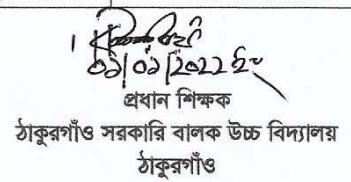 ০১/০১/২০২২ ইং
প্রধান শিক্ষক
ঠাকুরগাঁও সরকারি বালক উচ্চ বিদ্যালয়
ঠাকুরগাঁও